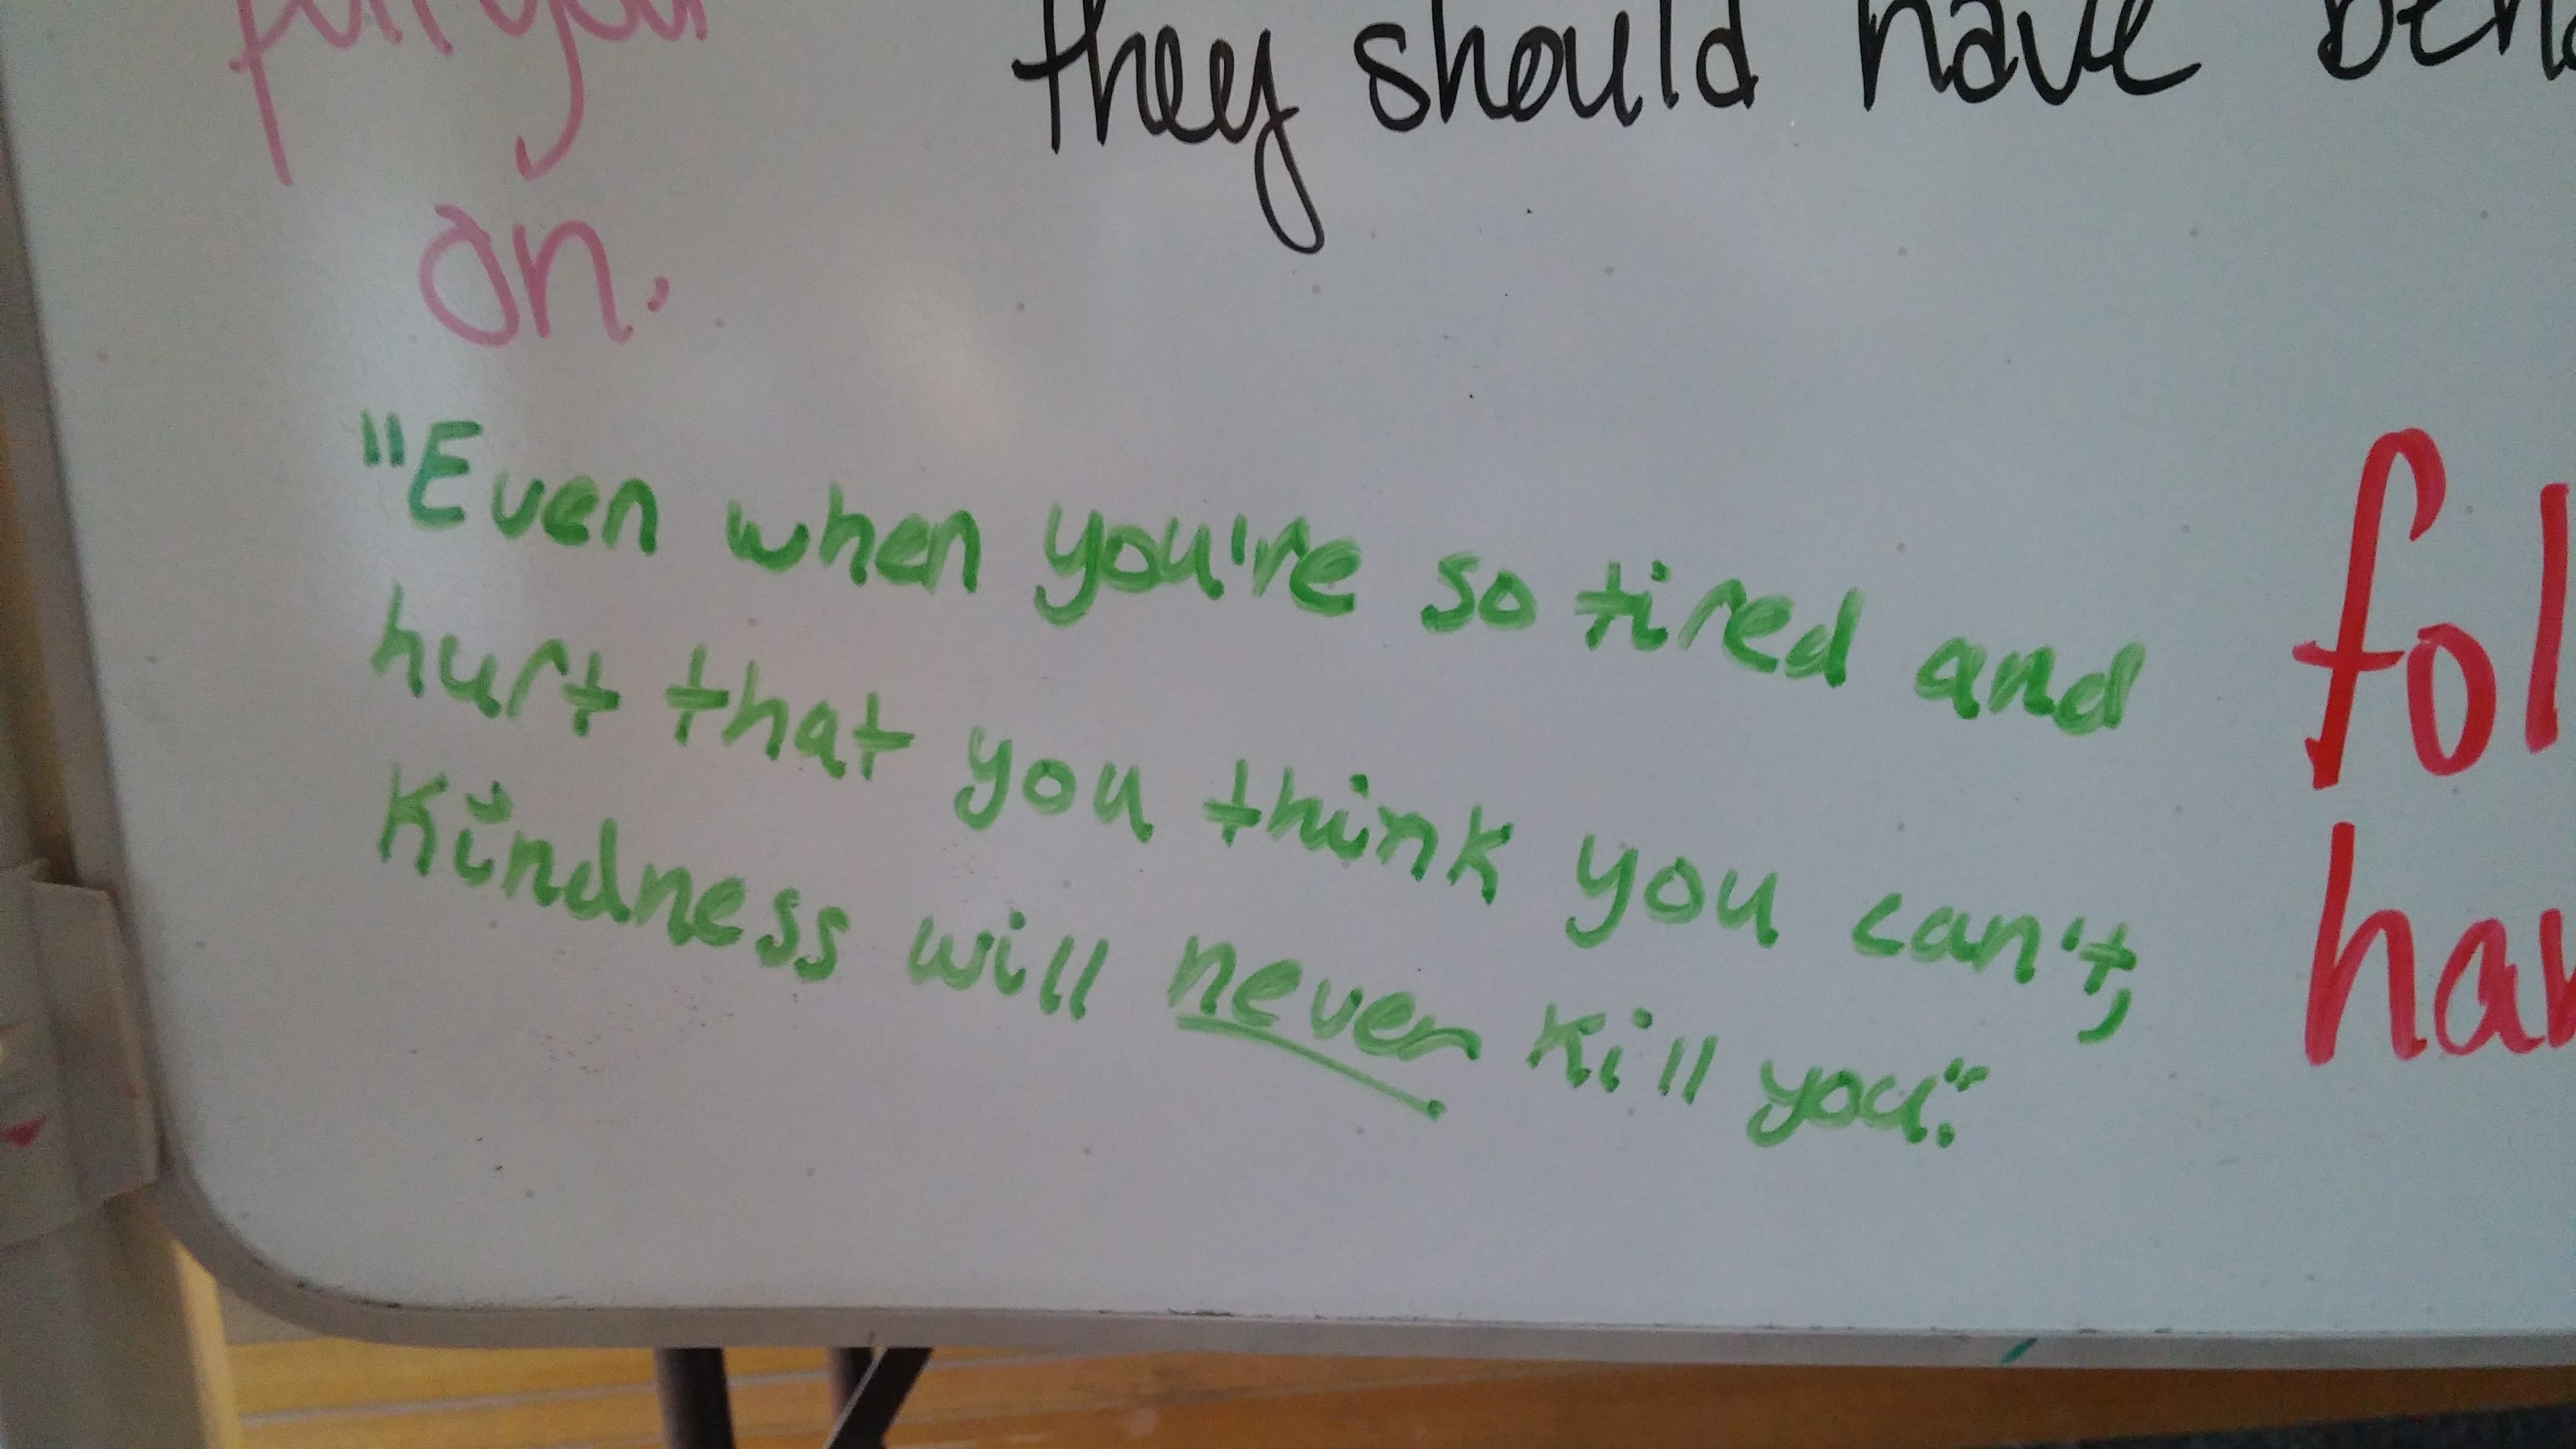 you
on.
they should have
"Even when you're so tired and
hurt that you think you can't,
Kindness will never kill you."
fol
har